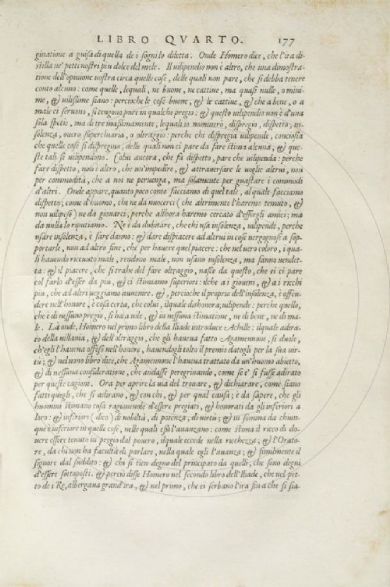 LIBRO QVARTO. 177
ginatione a guisa di quella de i sogni lo diletta. Onde Homero dice, che l'ira di-
stilla ne' petti nostri piu dolce del mele. Il uilipendio non è altro, che una dimostra-
tione dell'opinione nostra circa quelle cose, delle quali non pare, che si debba tenere
conto alcuno: come quelle, lequali, ne buone, ne cattiue, ma quasi nulle, o mini-
me, & uilissime siano: percioche le cose buone, & le cattiue, & che a bene, o a
male ci seruono, si tengono pure in qualche pregio: & questo uilipendio non è d'una
sola spetie, ma di tre massimamente, lequali io nomino, dispregio, dispetto, in-
solenza, ouero superchiaria, o oltraggio: perche chi dispregia uilipende, conciosia
che quelle cose si dispregino, delle quali non ci pare da fare stima alcuna, & que-
ste tali si uilipendono. Colui ancora, che fa dispetto, pare che uilipenda: perche
fare dispetto, non è altro, che un'impedire, & attrauersare le uoglie altrui, non
per commodità, che a noi ne peruenga, ma solamente per guastare i commodi
d'altri. Onde appare, quanto poco conto facciamo di quel tali, al quale facciamo
dispetto; come d'huomo, che ne da nuocerci (che altrimenti l'haremo temuto, &
non uilipeso) ne da giouarci, perche alhora haremo cercato d'essergli amici; ma
da nulla lo riputiamo. Ne è da dubitare, che chi usa insolenza, uilipende, perche
usare insolenza, è fare danno: & dare dispiacere ad altrui in cose uergognose a sop-
portarle, non ad altro fine, che per hauere quel piacere: che nel uero coloro, i qua-
li hauendo riceuuto male, rendono male, non usano insolenza, ma fanno uendet-
ta: & il piacere, che si trahe dal fare oltraggio, nasce da questo, che ei ci pare
col farlo d'esser da piu, & ci stimiamo superiori: ilche a i giouani, & a i ricchi
piu, che ad altri ueggiamo auuenire. &, percioche il proprio dell'insolenza, è l'offen-
dere nell'honore, è cosa certa, che colui, il quale dishonora, uilipende: perche quello,
che è di nessuno pregio, si ha a uile, & in nessuna stimatione, ne di bene, ne di ma-
le. La onde, Homero nel primo libro della Iliade introduce Achille: il quale adira-
to della uillania, & dell'oltraggio, che gli haueua fatto Agamennone, si duole,
ch'egli l'haueua offeso nell'honore, hauendogli tolto il premio datogli per la sua uir-
tu: & nel nono libro dice, che Agamennone l'haueua trattato da un'huomo abietto,
& di nessuna consideratione, che andasse peregrinando, come se e' si fusse adirato
per queste cagioni. Ora per aprire la uia del trouare, & dichiarare, come siano
fatti quegli, che si adirano, & con chi, & per qual causa; è da sapere, che gli
huomini stimano cosa ragioneuole d'essere pregiati, & honorati da gli inferiori a
loro: & inferiori (dico) di nobiltà, di potenza, di uirtù; & in somma da chiun-
que è inferiore in quelle cose, nelle quali essi l'auanzano: come stima il ricco di do-
uere essere tenuto in pregio dal pouero, il quale eccede nella ricchezza; & l'Orato-
re, da chi non ha facultà di parlare, nella quale egli l'auanza; & similmente il
signore dal suddito: & chi si tien degno del principato da quelli, che sono degni
d'essere sottoposti. & perciò disse Homero nel secondo libro dell'Iliade, che nel pet-
to de i Re, albergaua grand'ira, & nel primo, che ei serbano l'ira fin a che si sia-